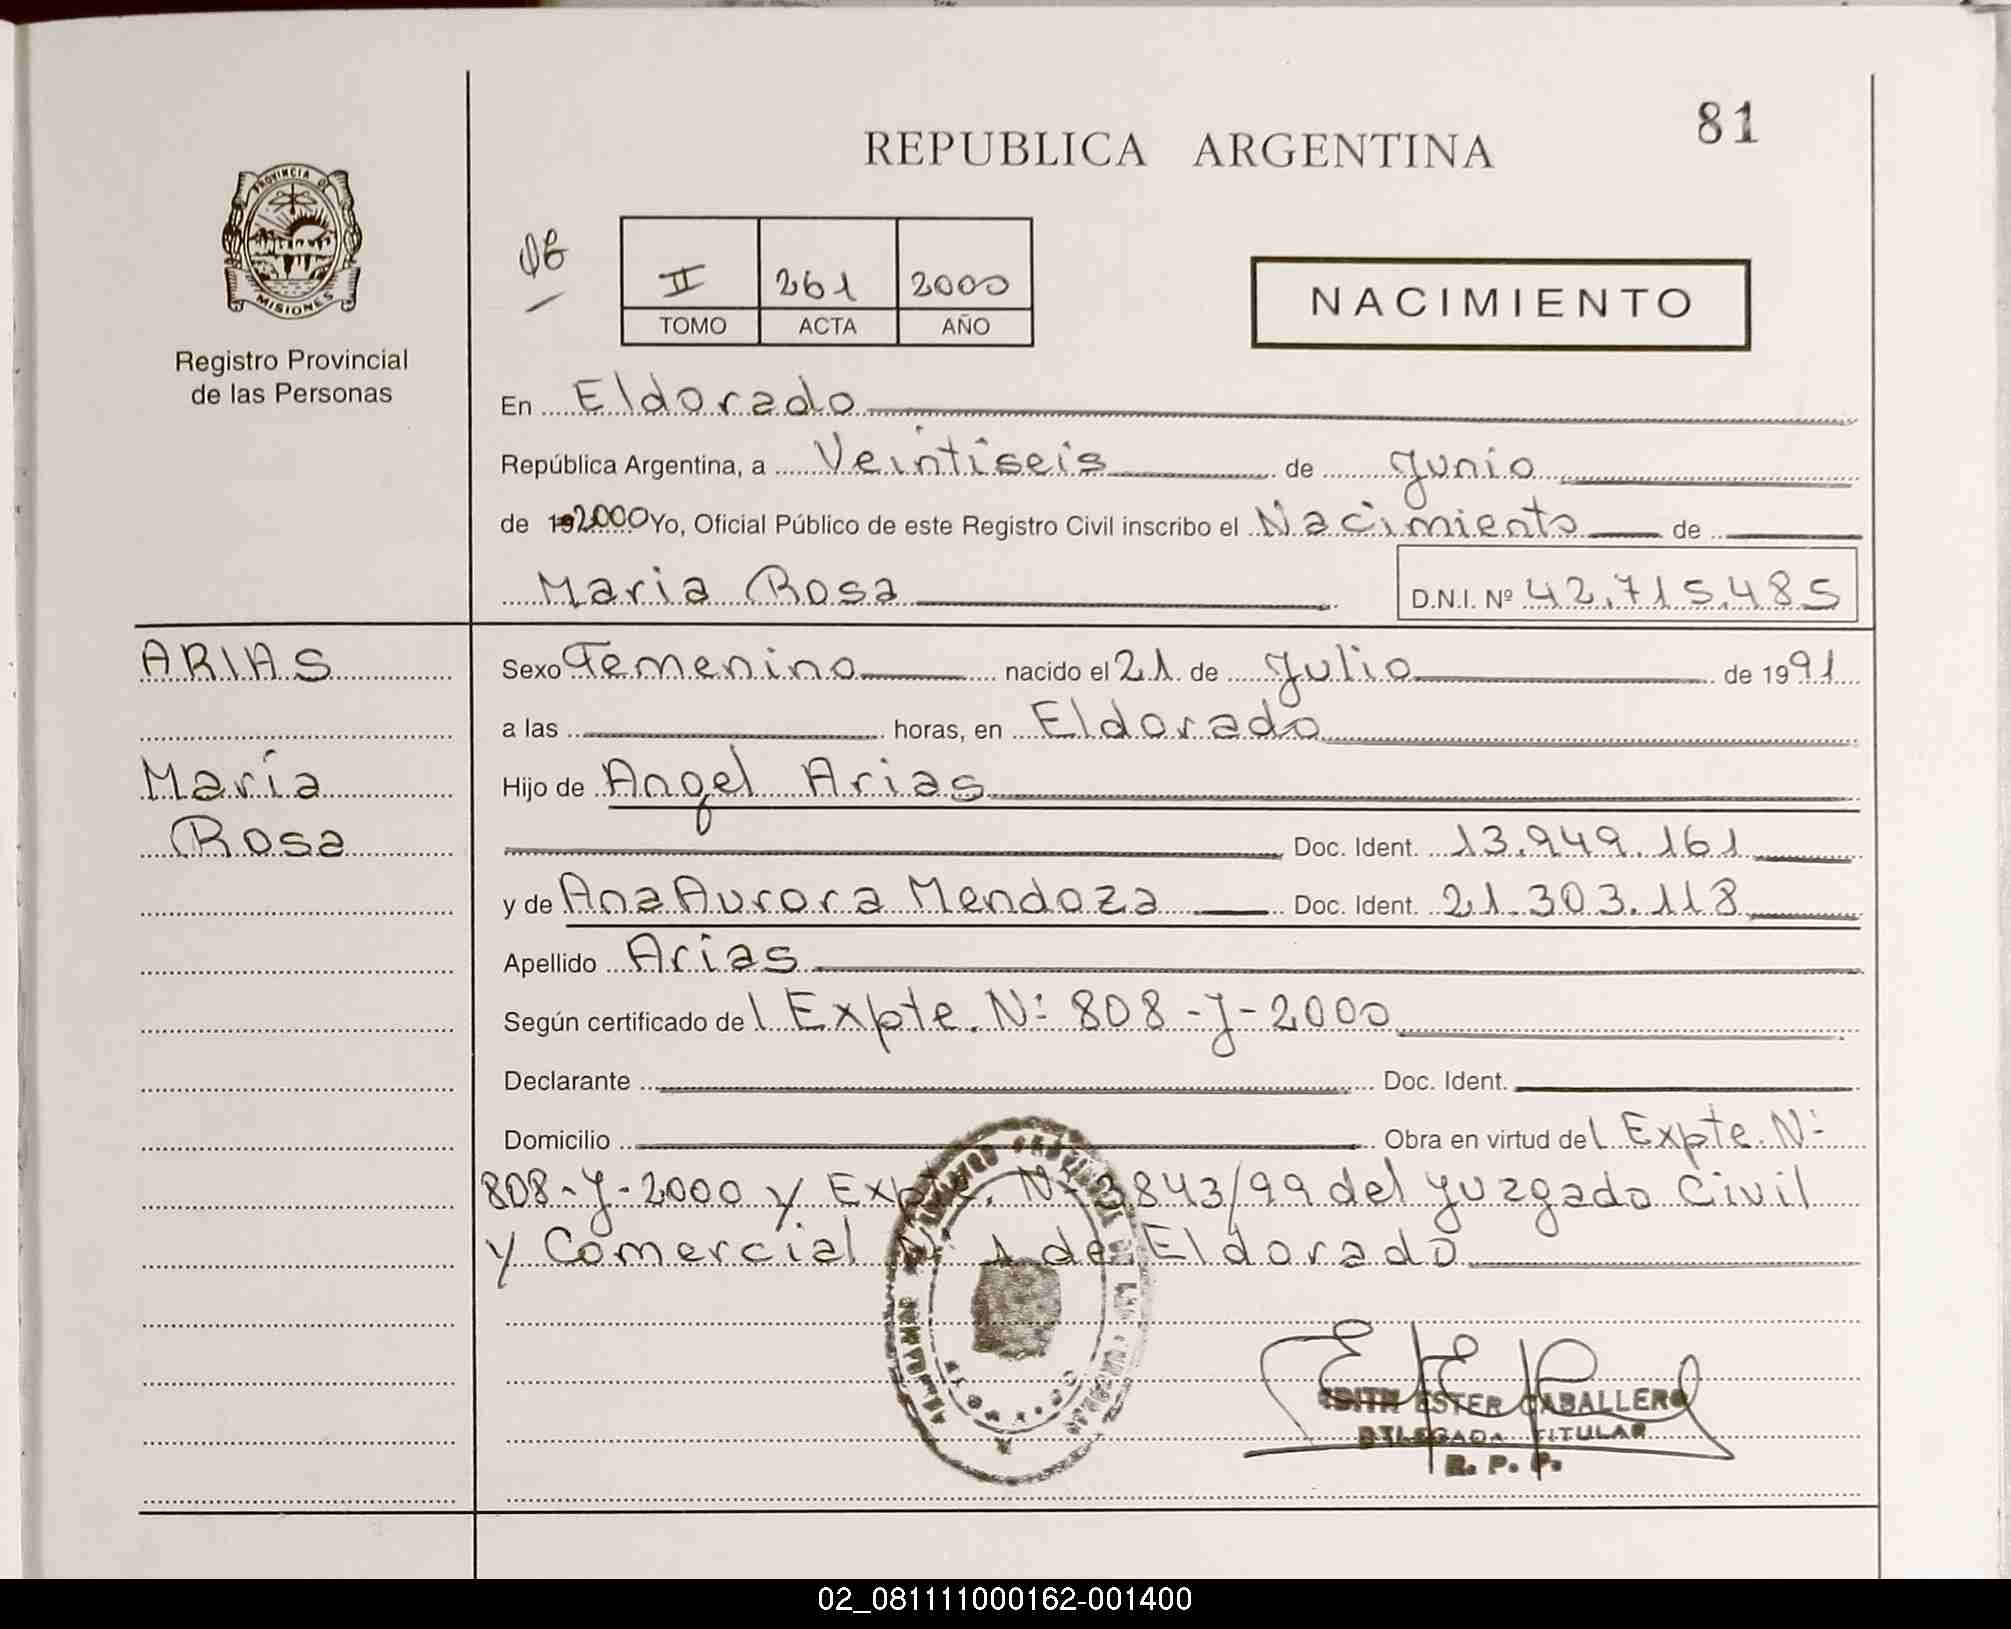 81
REPUBLICA ARGENTINA
PROVINCIA DE
MISIONES
Registro Provincial
de las Personas
II 261 2000
TOMO ACTA AÑO
NACIMIENTO
En Eldorado
República Argentina, a Veintiseis de Junio
de 192000 Yo, Oficial Público de este Registro Civil inscribo el Nacimiento de
Maria Rosa D.N.I. Nº 42.715.485
ARIAS
María
Rosa
Sexo Femenino nacido el 21 de Julio de 1991
a las horas, en Eldorado
Hijo de Angel Arias
Doc. Ident. 13.949.161
y de Ana Aurora Mendoza Doc. Ident. 21.303.118
Apellido Arias
Según certificado del Expte. Nº 808-J-2000
Declarante Doc. Ident.
Domicilio Obra en virtud del Expte. Nº
808-J-2000 y Expte. Nº 3843/99 del Juzgado Civil
y Comercial Nº 1 de Eldorado
EDITH ESTER CABALLERO
DELEGADA TITULAR
R. P. P.
02_081111000162-001400